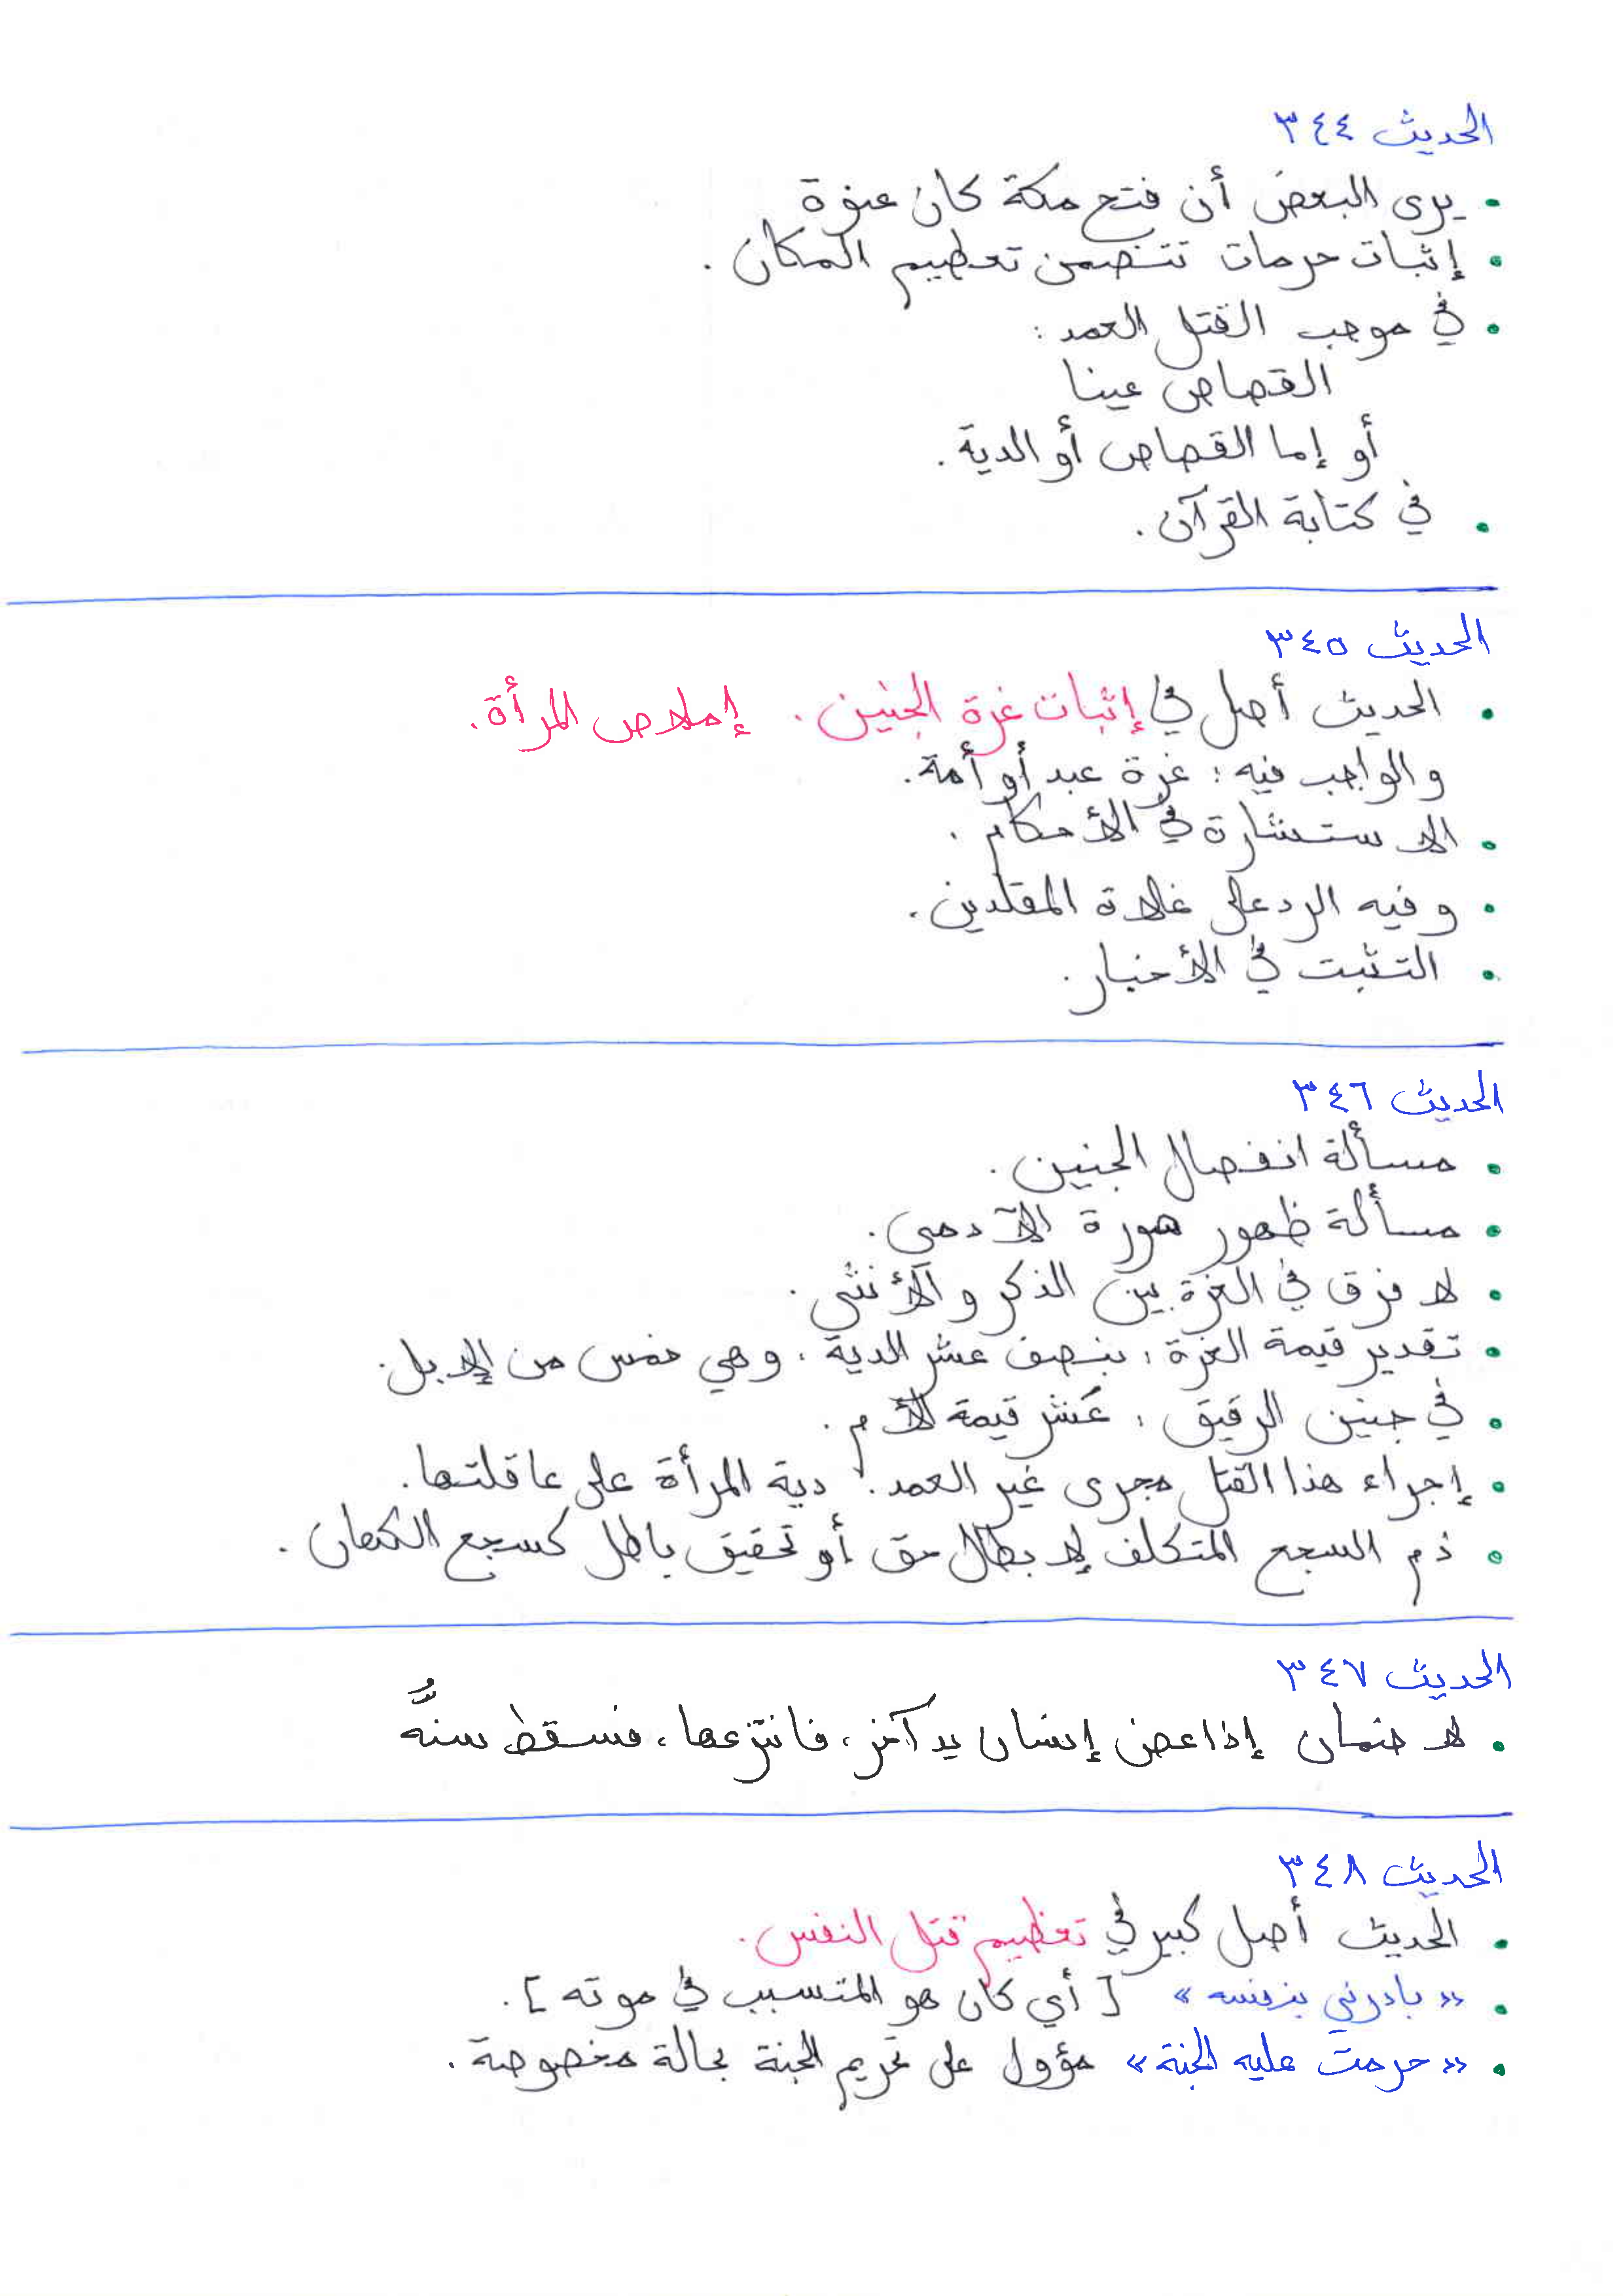 الحديث ٣٤٤
• يرى البعض أن فتح مكة كان عنوة
• إثبات حرمات تتضمن تعظيم المكان .
• في موجب القتل العمد :
القصاص عينا
أو إما القصاص أو الدية .
• في كتابة القرآن .
الحديث ٣٤٥
• الحديث أصل في إثبات غرة الجنين . إملاص المرأة .
والواجب فيه : غرة عبد أو أمة .
• الاستشارة في الأحكام .
• وفيه الرد على غلاة المقلدين .
• التثبت في الأخبار .
الحديث ٣٤٦
• مسألة انفصال الجنين .
• مسألة ظهور صورة الآدمي .
• لا فرق في الغرة بين الذكر والأنثى .
• تقدير قيمة الغرة : بنصف عشر الدية ، وهي خمس من الإبل .
• في جنين الرقيق : عُشر قيمة الأم .
• إجراء هذا القتل مجرى غير العمد . دية المرأة على عاقلتها .
• ذم السجع المتكلف لإبطال حق أو تحقيق باطل كسجع الكهان .
الحديث ٣٤٧
• لا ضمان إذا عض إنسان يد آخر ، فانتزعها ، فسقط سنُّه
الحديث ٣٤٨
• الحديث أصل كبير في تعظيم قتل النفس .
• « بادرني بنفسه » [ أي كان هو المتسبب في موته ] .
• « حرمت عليه الجنة » مؤول على تحريم الجنة بحالة مخصوصة .